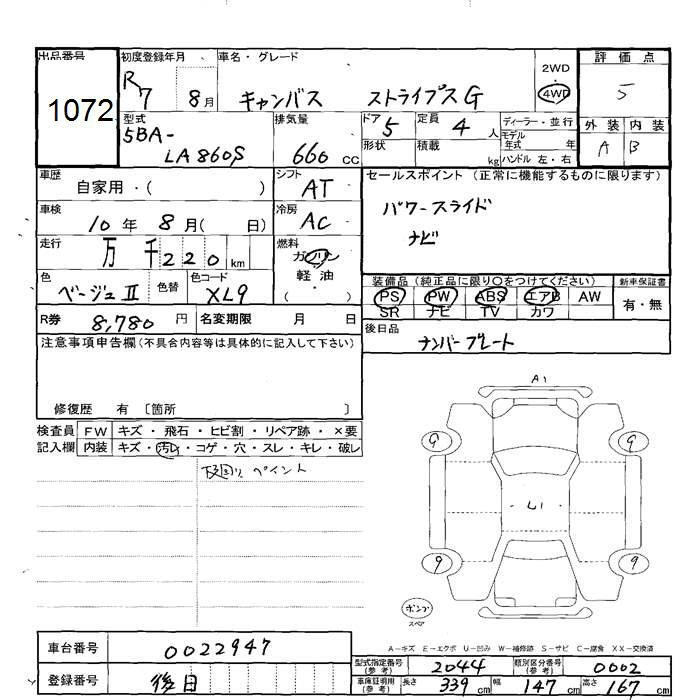 出品番号
1072
初度登録年月
R7 8月
車名・グレード
キャンバス ストライプスG
2WD
4WD
評価点
5
外装 内装
A B
型式
5BA-
LA860S
排気量
660 CC
ドア 5
形状
定員 4 人
積載 kg
ディーラー・並行
モデル
年式 年
ハンドル 左・右
車歴
自家用・( )
シフト
AT
車検
10年 8月( 日)
冷房
AC
走行
万 千220km
燃料
ガソリン
軽油
( )
色
ベージュⅡ
色替
色コード
XL9
R券 8,780 円
名変期限 月 日
セールスポイント (正常に機能するものに限ります)
パワースライド
ナビ
装備品 (純正品に限り○をつけてください)
PS PW ABS エアB AW
SR ナビ TV カワ
新車保証書
有・無
後日品
ナンバープレート
注意事項申告欄(不具合内容等は具体的に記入して下さい)
修復歴 有 〔箇所 〕
検査員
記入欄
FW キズ・飛石・ヒビ割・リペア跡・×要
内装 キズ・汚れ・コゲ・穴・スレ・キレ・破レ
下回り ペイント
A1
9 9
L1
9 9
ポンプ
スペア
A-キズ E-エクボ U-凹み W-補修跡 S-サビ C-腐食 XX-交換済
車台番号 0022947
登録番号 後日
型式指定番号
(参考)
2044
類別区分番号
(参考)
0002
車庫証明用
(参考)
長さ 339cm 幅 147cm 高さ 167cm